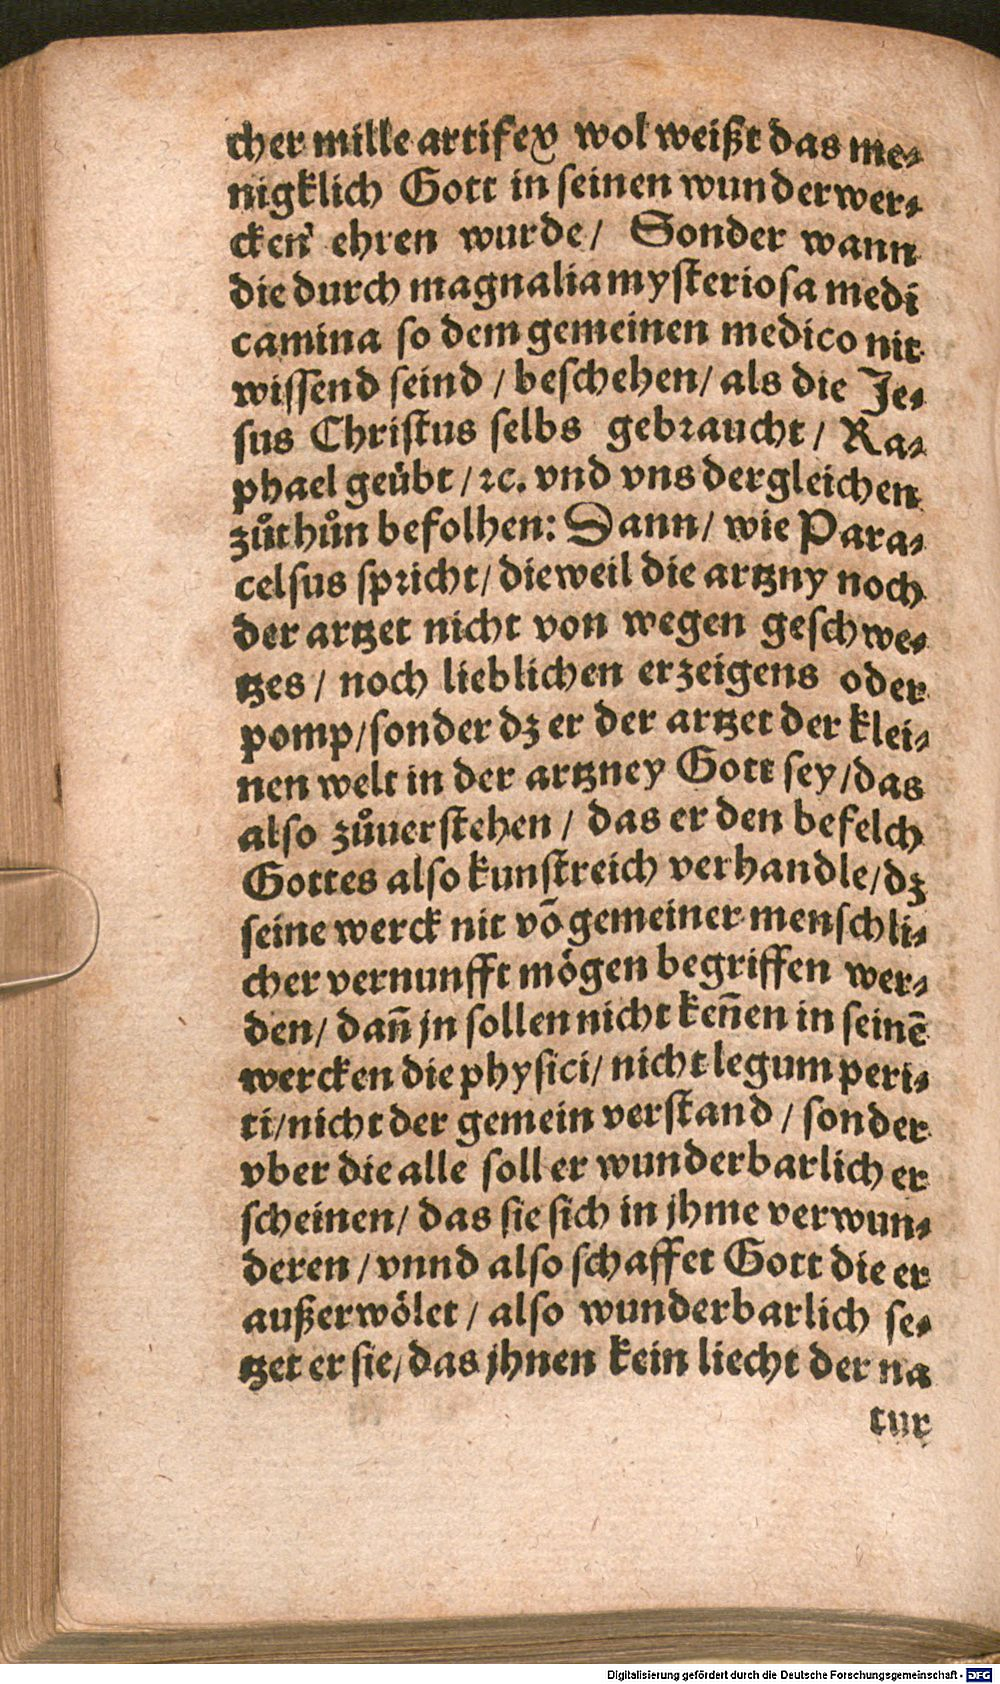 cher mille artifex wol weißt das me⸗
nigklich Gott in seinen wunderwer⸗
cken ehren wurde/ Sonder wann
die durch magnalia mysteriosa medi
camina so dem gemeinen medico nit
wissend seind / beschehen/ als die Je⸗
sus Christus selbs gebraucht / Ra⸗
phael geübt / ꝛc. vnd vns dergleichen
zůthůn befolhen: Dann/ wie Para⸗
celsus spricht/ dieweil die artzny noch
der artzet nicht von wegen geschwe⸗
tzes / noch lieblichen erzeigens oder
pomp/sonder dz er der artzet der klei⸗
nen welt in der artzney Gott sey/das
also zůuerstehen / das er den befelch
Gottes also kunstreich verhandle/dz
seine werck nit võ gemeiner menschli⸗
cher vernunfft mögen begriffen wer⸗
den/ dañ jn sollen nicht keñen in seinẽ
wercken die physici/ nicht legum peri⸗
ti/nicht der gemein verstand / sonder
vber die alle soll er wunderbarlich er
scheinen/ das sie sich in jhme verwun⸗
deren / vnnd also schaffet Gott die er
außerwölet / also wunderbarlich se⸗
tzet er sie/ das jhnen kein liecht der na
tur
Digitalisierung gefördert durch die Deutsche Forschungsgemeinschaft - DFG